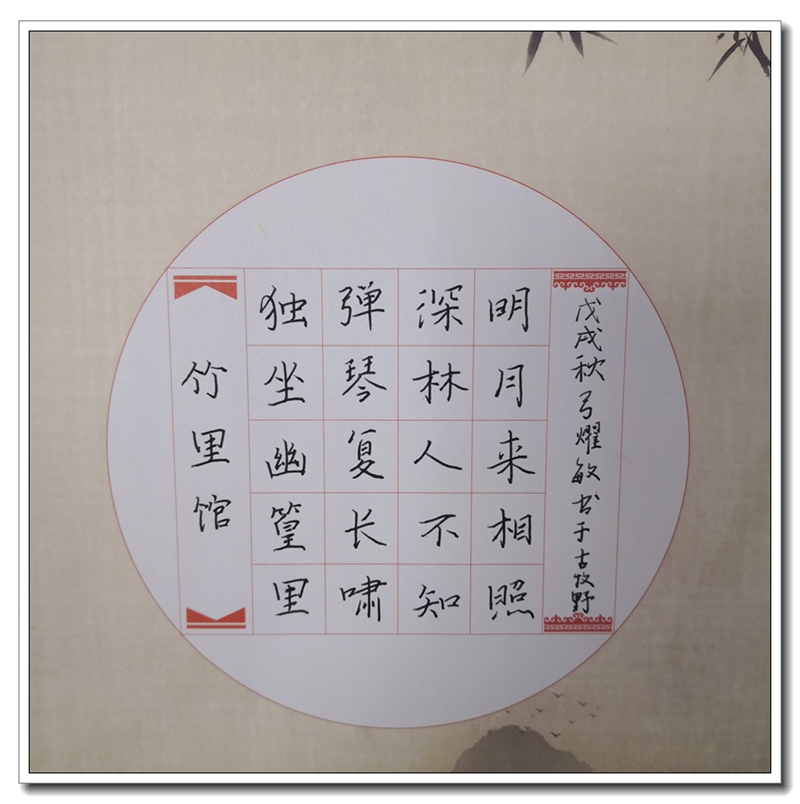 竹里馆
独坐幽篁里
弹琴复长啸
深林人不知
明月来相照
戊戌秋弓耀敏书于古牧野